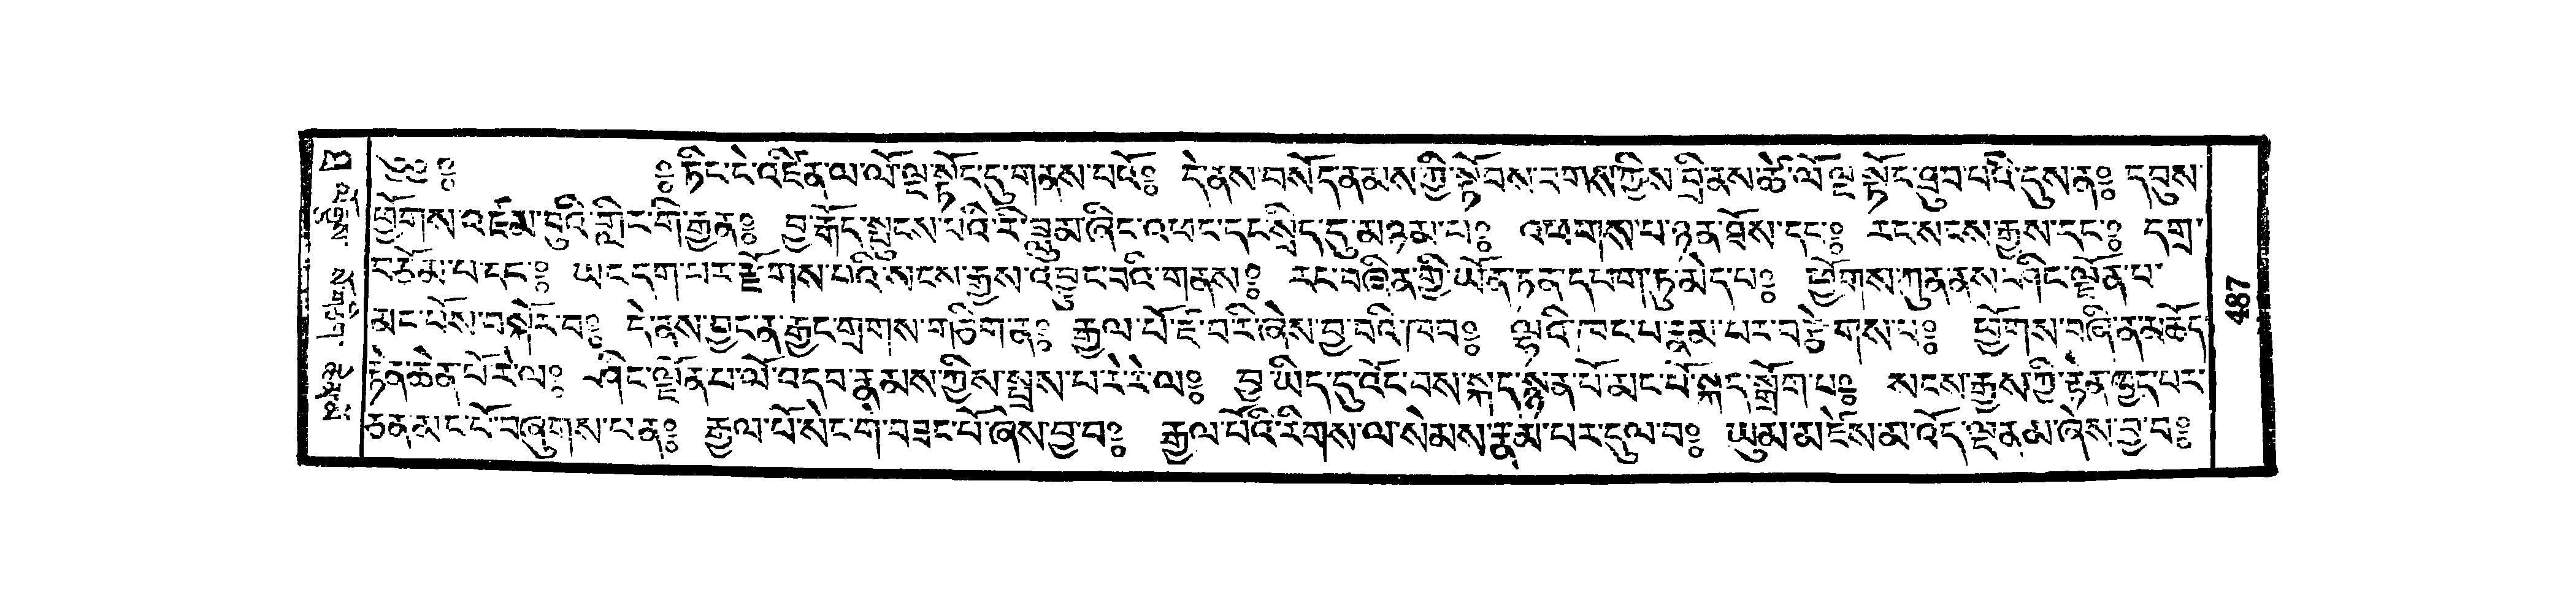 ༄༅༔ ༔ཏིང་ངེ་འཛིན་ལ་ལོ་ལྔ་སྟོང་དུ་གནས་པའོ༔ དེ་ནས་བསོད་ནམས་ཀྱི་སྟོབས་དགས་ཀྱིས་བྱིནས་ཚེ་ལོ་ལྔ་སྟོང་ཐུབ་པའི་དུས་ན༔ དབུས་
ཕྱོགས་འཛམ་བུའི་གླིང་གི་རྒྱན༔ བྱ་རྒོད་སྤུངས་པའི་རི་ཟླུམ་ཞིང་འཕང་དང་སྲིད་དུ་མཉམ་པ༔ འཕགས་པ་ཉན་ཐོས་དང༔ རང་སངས་རྒྱས་དང༔ དགྲ་
བཅོམ་པ་དང༔ ཡང་དག་པར་རྫོགས་པའི་སངས་རྒྱས་འབྱུང་བའི་གནས༔ རང་བཞིན་གྱི་ཡོན་ཏན་དཔག་ཏུ་མེད་པ༔ ཕྱོགས་ཀུན་ནས་ཤིང་ལྗོན་པ་
མང་པོས་བསྐོར་བ༔ དེ་ནས་བྱང་ན་རྒྱང་གྲགས་གཅིག་ན༔ རྒྱལ་པོ་ཇོ་བརི་ཞེས་བྱ་བའི་ཁབ༔ ལྷའི་ཁང་པ་རྣམ་པར་བརྩེགས་པ༔ ཕྱོགས་བཞི་ན་མཆོད་
རྟེན་ཆེན་པོ་རེ་ལ༔ ཤིང་ལྗོན་པ་ལོ་བདབ་རྣམས་ཀྱིས་སྤྲས་པ་རེ་རེ་ལ༔ བྱ་ཡིད་དུ་འོང་བས་སྐད་སྙན་པོ་མང་པོ་སྐད་སྒྲོག་པ༔ སངས་རྒྱས་ཀྱི་རྟེན་ཁྱད་པར་
ཅན་མང་པོ་བཞུགས་པ་ན༔ རྒྱལ་པོ་སེང་གེ་བཟང་པོ་ཞེས་བྱ་བ༔ རྒྱལ་པོའི་རིགས་ལ་སེམས་རྣམ་པར་དུལ་བ༔ ཡུམ་མཛེས་མ་འོད་ལྡན་མ་ཞེས་བྱ་བ༔
487